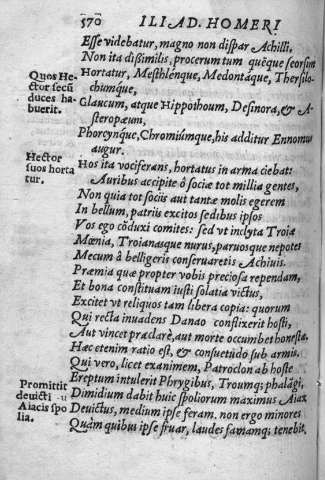 570 ILIAD. HOMERI
Esse videbatur, magno non dispar Achilli.
Non ita dißimilis, procerum tum quēque seorsim
Quos He-
ctor secū
duces ha-
buerit.
Hortatur, Mesthlénque, Medontáque, Thersilo-
chúmque,
Glaucum, atque Hippothoum, Desinora, & A-
steropæum,
Phorcynque, Chromiúmque, his additur Ennomus
augur.
Hector
suos horta
tur.
Hos ita vociferans, hortatus in arma ciebat:
Auribus accipite ô sociæ tot millia gentes,
Non quia tot sociis aut tantæ molis egerem
In bellum, patriis excitos sedibus ipsos
Vos ego cōduxi comites: sed vt inclyta Troiæ
Mœnia, Troianasque nurus, paruosque nepotes
Mecum â belligeris conseruaretis Achiuis.
Præmia quæ propter vobis preciosa rependam,
Et bona constituam iusti solatia victus,
Excitet vt reliquos tam libera copia: quorum
Qui recta inuadens Danao conflixerit hosti,
Aut vincet præclarè, aut morte occumbet honestâ:
Hæc etenim ratio est, & consuetudo sub armis.
Qui vero, licet exanimem, Patroclon ab hoste
Ereptum intulerit Phrygibus, Troumq; phalāgi,
Promittit
deuicti
Aiacis spo
lia.
Dimidium dabit huic spoliorum maximus Aiax
Deuictus, medium ipse feram. non ergo minores
Quám quibus ipse fruar, laudes famamq; tenebit.